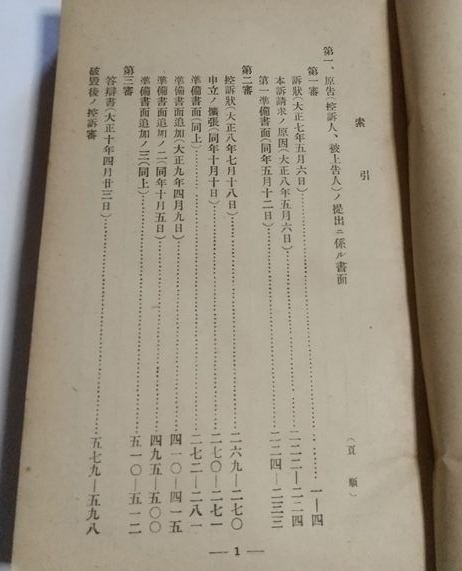 索引
(頁順)
第一、原告(控訴人、被上告人)ノ提出ニ係ル書面
第一審
訴狀(大正七年五月六日)……一—四
本訴請求ノ原因(大正八年五月六日)……二二二—二二四
第一準備書面(同年五月十二日)……二二四—二三三
第二審
控訴狀(大正八年七月十八日)……二六九—二七〇
申立ノ擴張(同年十月十日)……二七〇—二七一
準備書面(同上)……二七二—二八一
準備書面追加(大正九年四月九日)……四一〇—四一五
準備書面追加ノ二(同年十月五日)……四九五—五〇〇
準備書面追加ノ三(同上)……五一〇—五一二
第三審
答辯書(大正十年四月廿三日)……五七九—五九八
破毀後ノ控訴審
— 1 —